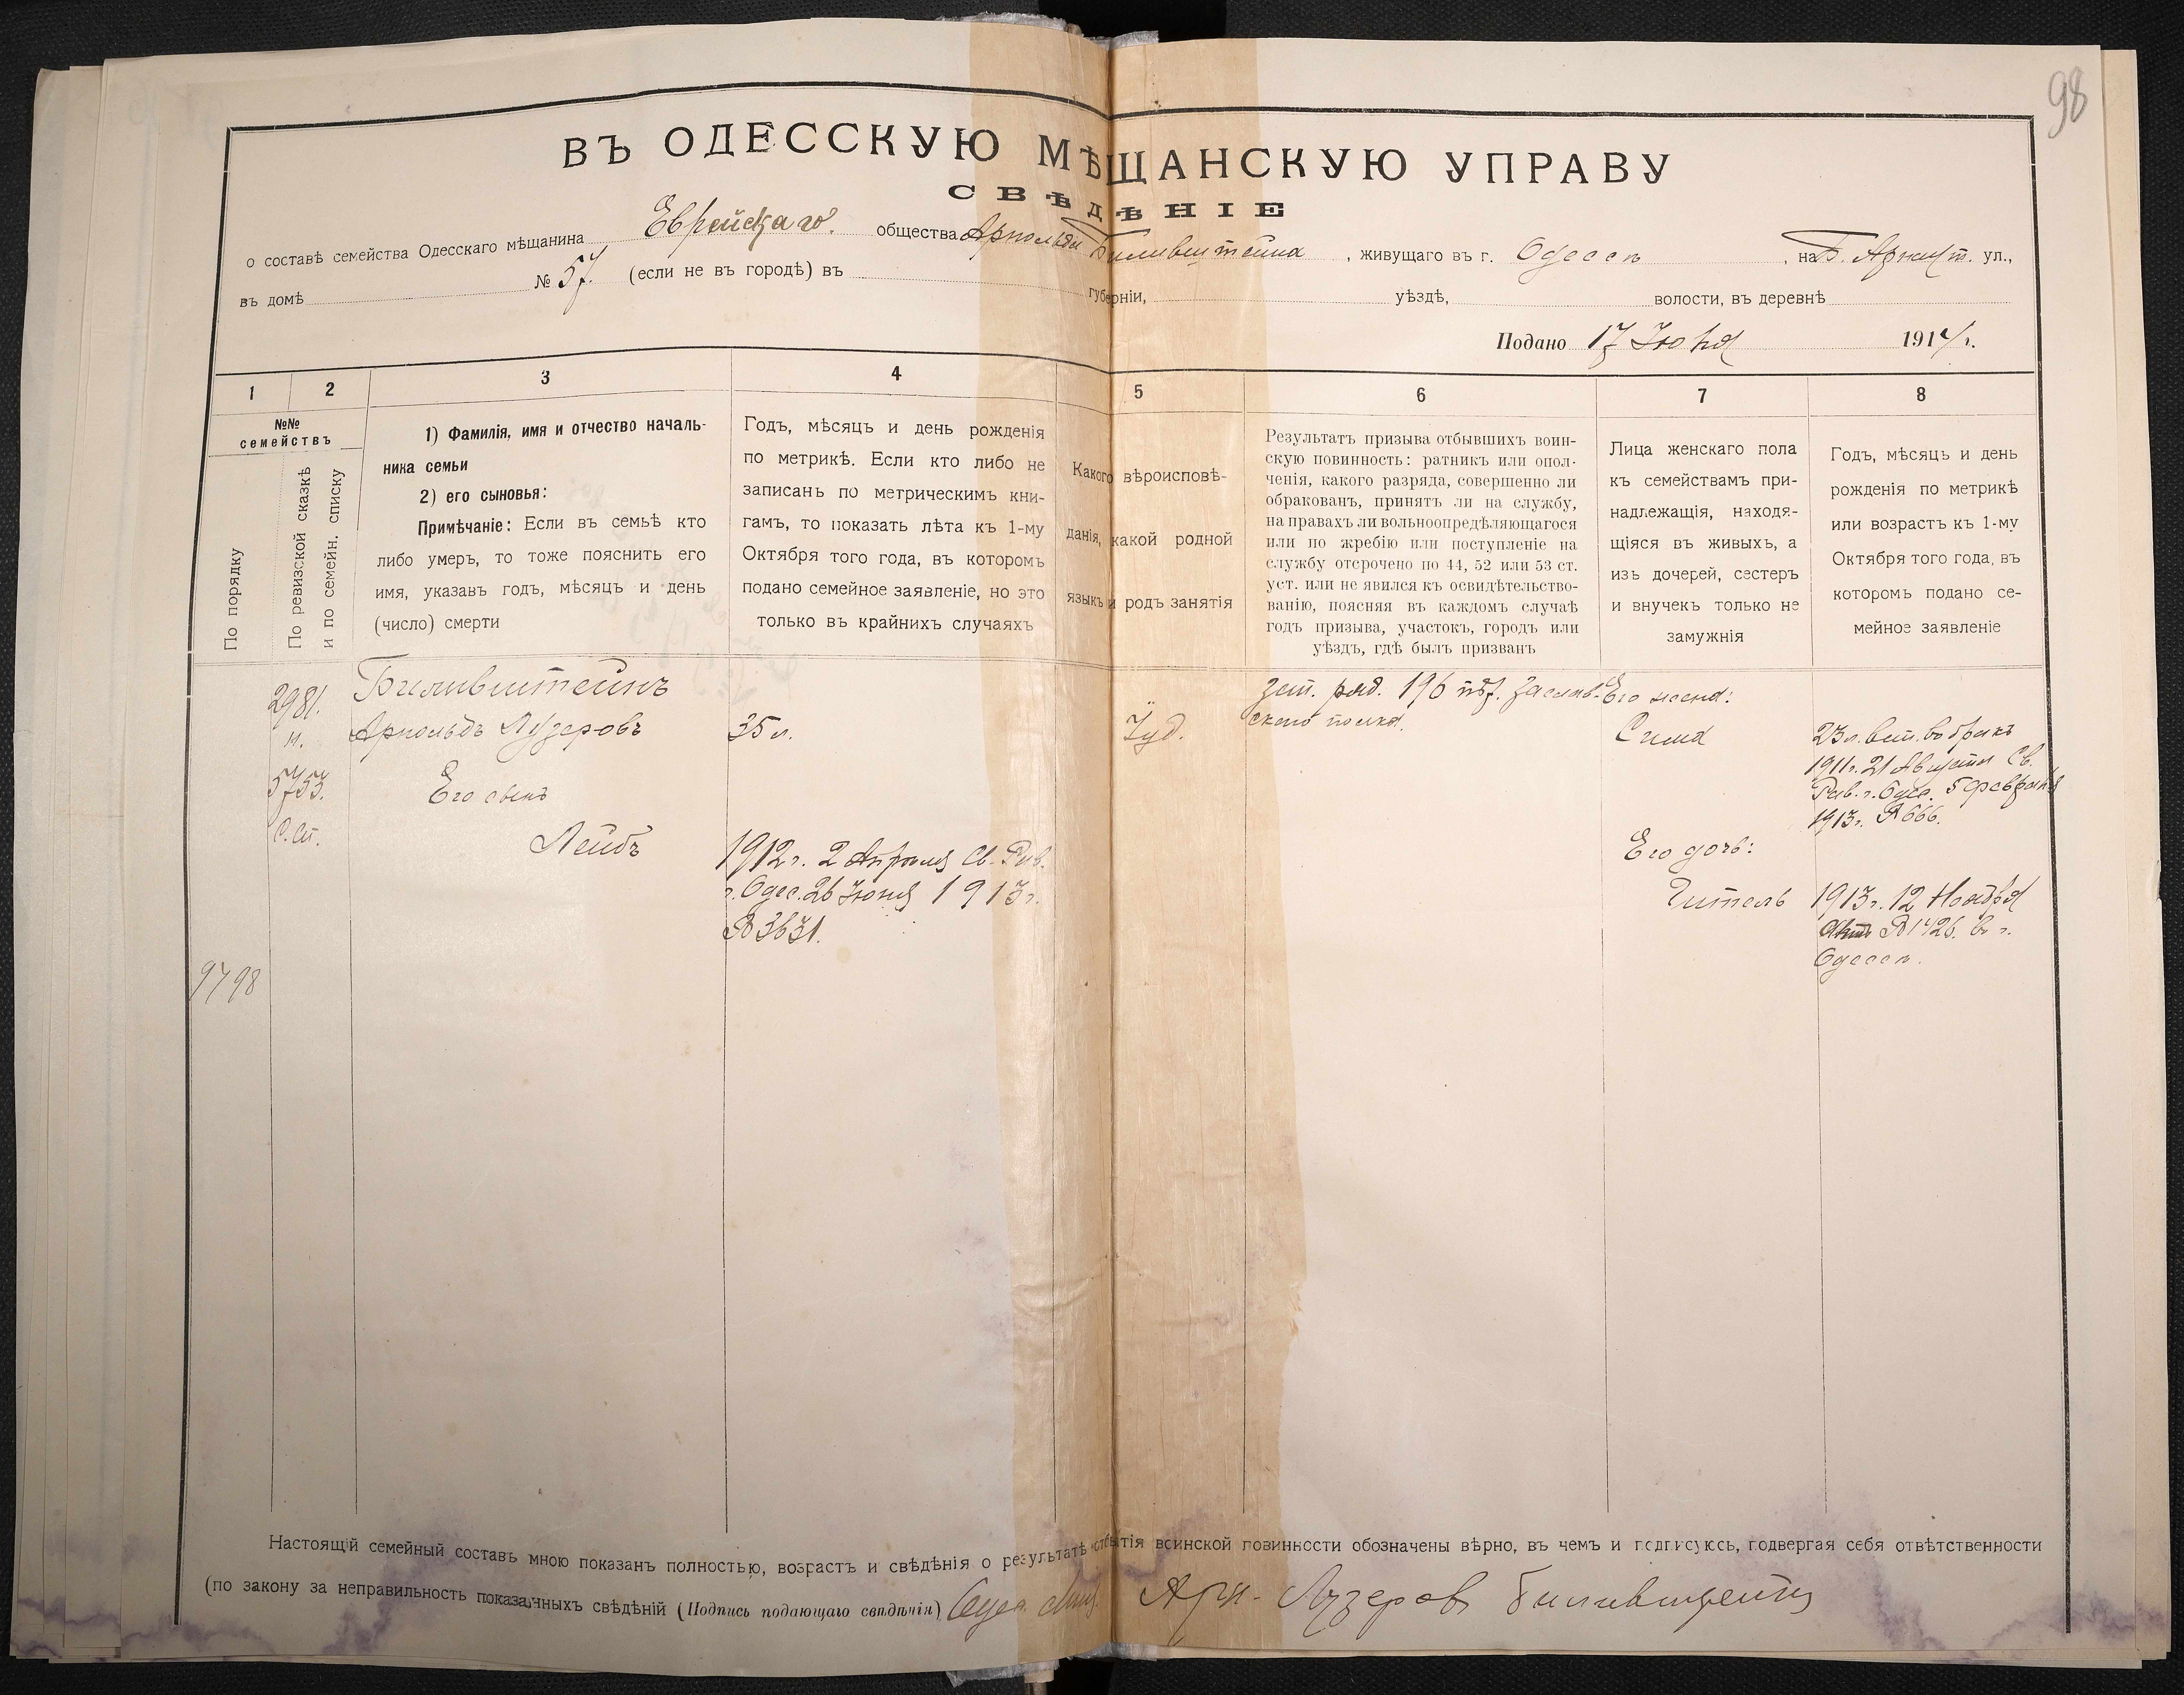 98
ВЪ ОДЕССКУЮ МѢЩАНСКУЮ УПРАВУ
СВѢДѢНІЕ
о составѣ семейства Одесскаго мѣщанина Еврейскаго общества Арнольда Биливштейна, живущаго въ г. Одессѣ, на Б. Арнаут. ул.,
въ домѣ № 57. (если не въ городѣ) въ губерніи, уѣздѣ, волости, въ деревнѣ
Подано 17 Іюня 1914 г.
1
2
3
4
5
6
7
8
№№
семействъ
По порядку
По ревизской сказкѣ
и по семейн. списку
1) Фамилія, имя и отчество началь-
ника семьи
2) его сыновья:
Примѣчаніе: Если въ семьѣ кто
либо умеръ, то тоже пояснить его
имя, указавъ годъ, мѣсяцъ и день
(число) смерти
Годъ, мѣсяцъ и день рожденія
по метрикѣ. Если кто либо не
записанъ по метрическимъ кни-
гамъ, то показать лѣта къ 1-му
Октября того года, въ которомъ
подано семейное заявленіе, но это
только въ крайнихъ случаяхъ
Какого вѣроисповѣ-
данія, какой родной
языкъ и родъ занятія
Результатъ призыва отбывшихъ воин-
скую повинность: ратникъ или опол-
ченія, какого разряда, совершенно ли
обракованъ, принятъ ли на службу,
на правахъ ли вольноопредѣляющагося
или по жребію или поступленіе на
службу отсрочено по 44, 52 или 53 ст.
уст. или не явился къ освидѣтельство-
ванію, поясняя въ каждомъ случаѣ
годъ призыва, участокъ, городъ или
уѣздъ, гдѣ былъ призванъ
Лица женскаго пола
къ семействамъ при-
надлежащія, находя-
щіяся въ живыхъ, а
изъ дочерей, сестеръ
и внучекъ только не
замужнія
Годъ, мѣсяцъ и день
рожденія по метрикѣ
или возрастъ къ 1-му
Октября того года, въ
которомъ подано се-
мейное заявленіе
2981.
н.
5753.
С.Сп.
9798
Биливштейнъ
Арнольдъ Лузеровъ
Его сынъ
Лейбъ
35 л.
1912 г. 2 Апрѣля Св. Рав.
г. Одес. 26 Іюня 1913 г.
№ 3631.
Іуд.
зап. ряд. 196 пѣх. Заслав-
скаго полка.
Его жена:
Сима
Его дочь:
Гитель
23 л. вст. въ бракъ
1911 г. 21 Августа Св.
Рав. г. Одес. 5 Февраля
1913 г. № 666.
1913 г. 12 Ноября
№ 1426. въ г.
Одессѣ.
Настоящій семейный составъ мною показанъ полностью, возрастъ и свѣдѣнія о результатѣ отбытія воинской повинности обозначены вѣрно, въ чемъ и подписуюсь, подвергая себя отвѣтственности
(по закону за неправильность показанныхъ свѣдѣній (Подпись подающаго свѣдѣнія) Одес. Мищ. Арн. Лузеров Биливштейн